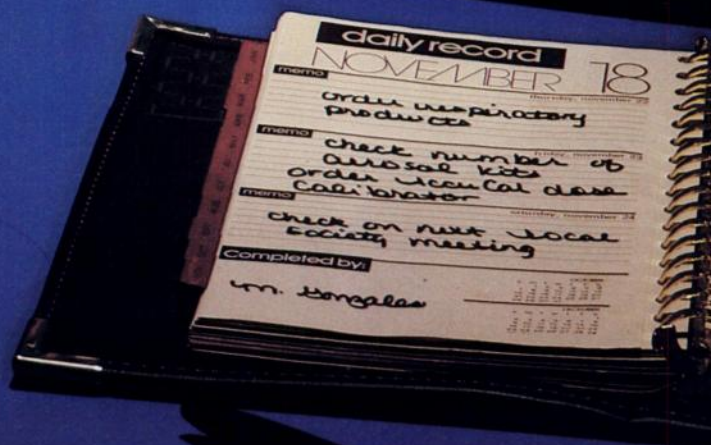 daily record
NOVEMBER 18
memo
thursday, november 22
order respiratory
products
memo
friday, november 23
check number of
aerosol kits
order AccuCal dose
Calibrator
memo
saturday, november 24
check on next local
society meeting
Completed by:
M. Gonzales